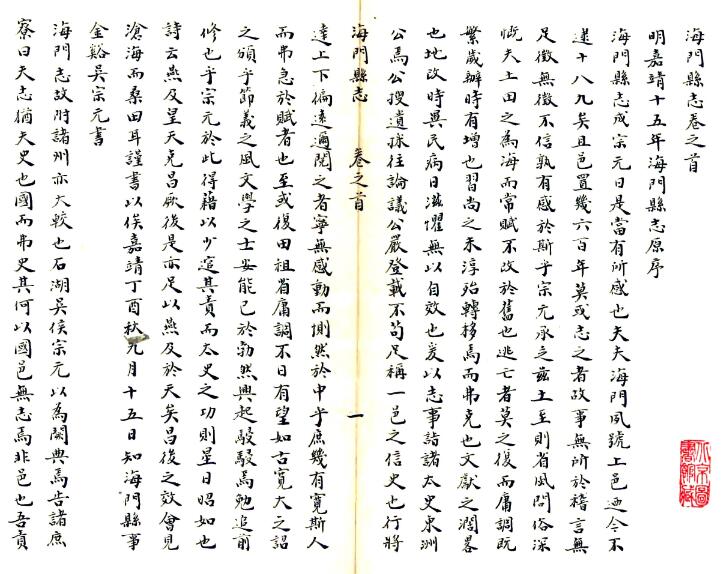 海門縣志卷之首
明嘉靖十五年海門縣志原序
海門縣志成宗元曰是當有所感也夫夫海門夙號上邑迺今不
逮十八九矣且邑置幾六百年莫或志之者故事無所於稽言無
足徵無徵不信孰有感於斯乎宗元承乏茲土至則省風問俗深
慨夫土田之為海而常賦不改於舊也逃亡者莫之復而庸調既
繁歲辦時有增也習尚之未淳殆轉移焉而弗克也文獻之濶畧
也地改時異民病日滋懼無以自效也爰以志事詣諸太史東洲
公焉公搜遺採往論議公嚴登載不苟足稱一邑之信史也行將
海門縣志 卷之首 一
達上下徧遠邇閱之者寧無感動而惻然於中乎庶幾有寬斯人
而弗急於賦者也至或復田祖省庸調不日有望如古寬大之詔
之頒乎節義之風文學之士安能已於勃然興起駸駸焉勉追前
修也乎宗元於此得藉以少逭其責而太史之功則星日昭如也
詩云燕及皇天克昌厥後是亦足以燕及於天矣昌後之效會見
滄海而桑田耳謹書以俟嘉靖丁酉秋九月十五日知海門縣事
金谿吳宗元書
海門志故附諸州亦大較也石湖吳侯宗元以為闕典焉告諸庶
寮曰夫志猶夫史也國而弗史其何以國邑無志焉非邑也吾責
北京圖
書館藏